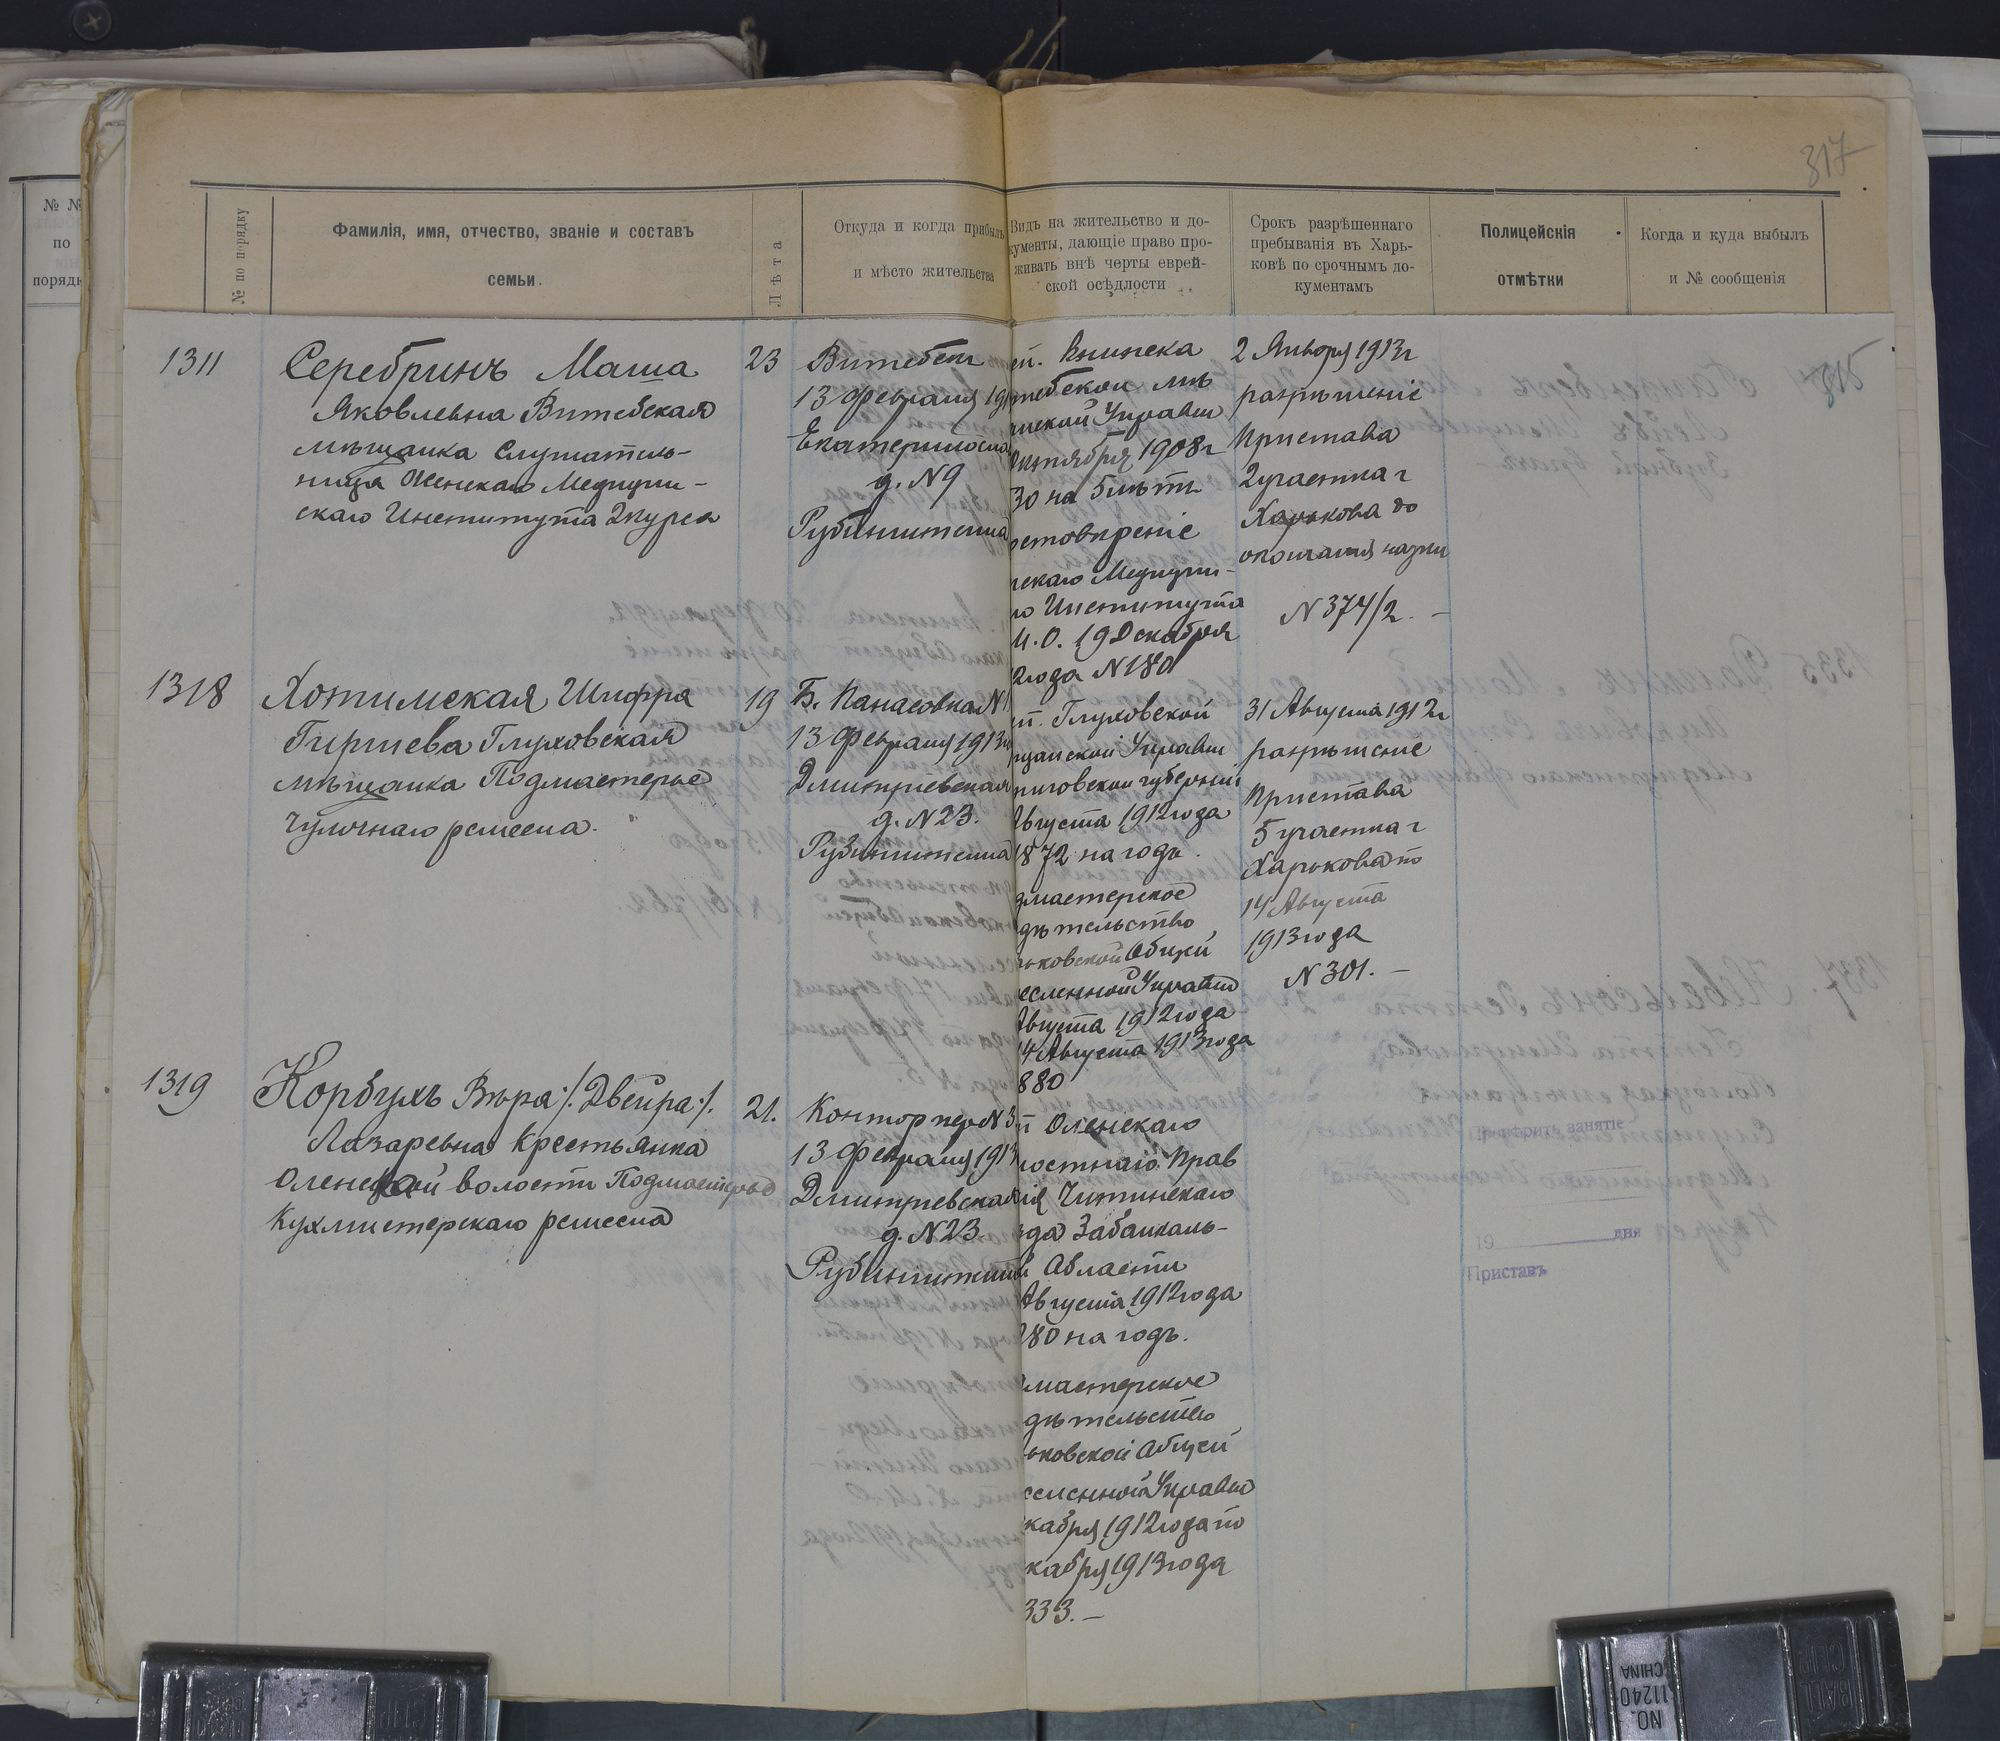 317
№ по порядку
Фамилія, имя, отчество, званіе и составъ
семьи.
Лѣта
Откуда и когда прибылъ
и мѣсто жительства
Видъ на жительство и до-
кументы, дающіе право про-
живать внѣ черты еврей-
ской осѣдлости
Срокъ разрѣшеннаго
пребыванія въ Харь-
ковѣ по срочнымъ до-
кументамъ
Полицейскія
отмѣтки
Когда и куда выбылъ
и № сообщенія
№ №
по
порядк
1311
Серебринъ Маша
Яковлевна Витебская
мѣщанка Слушатель-
ница Женскаго Медицин-
скаго Института 2 курса
23
Витебск
13 Февраля 191
Екатериносла
д. N 9
Рубинштейна
ей. Книжка
тебской мѣ
нской Управы
Октября 1908 г
30 на 5 лѣтъ
стовѣреніе
нскаго Медицин-
го Института
М.О. 19 Декабря
2 года N 180
2 Января 1913 г
разрѣшеніе
Пристава
2 участка г
Харькова до
окончанія науки
N 374/2. -
315
1318
Хотимская Шифра
Гиршева Глуховская
мѣщанка Подмастерье
чулочнаго ремесла.
19
Б. Панасовка N
13 Февраля 1913 г
Дмитріевская
д. N 23.
Рубинштейна
ей. Глуховской
щанской Управы
ниговской губерніи
Августа 1912 года
1872 на годъ.
дмастерское
дѣтельство
ьковской Общей
есленной Управы
Августа 1912 года
14 Августа 1913 года
880
31 Августа 1912 г
разрѣшеніе
Пристава
5 участка г
Харькова по
14 Августа
1913 года
N 301. -
1319
Корбулъ Вѣра /:Двейра:/.
Лазаревна Крестьянка
Оленской волости Подмастерье
Кухмистерскаго ремесла
21.
Контор пер N 3
13 Февраля 1913
Дмитріевская
д. N 23
Рубинштейн
й Оленскаго
лостнаго Прав
ія Читинскаго
зда Забайкаль-
й Области
Августа 1912 года
280 на годъ.
дмастерское
дѣтельство
ьковской Общей
есленной Управы
кабря 1912 года по
кабря 1913 года
333. -
Провѣрить занятіе
19 дня
Приставъ